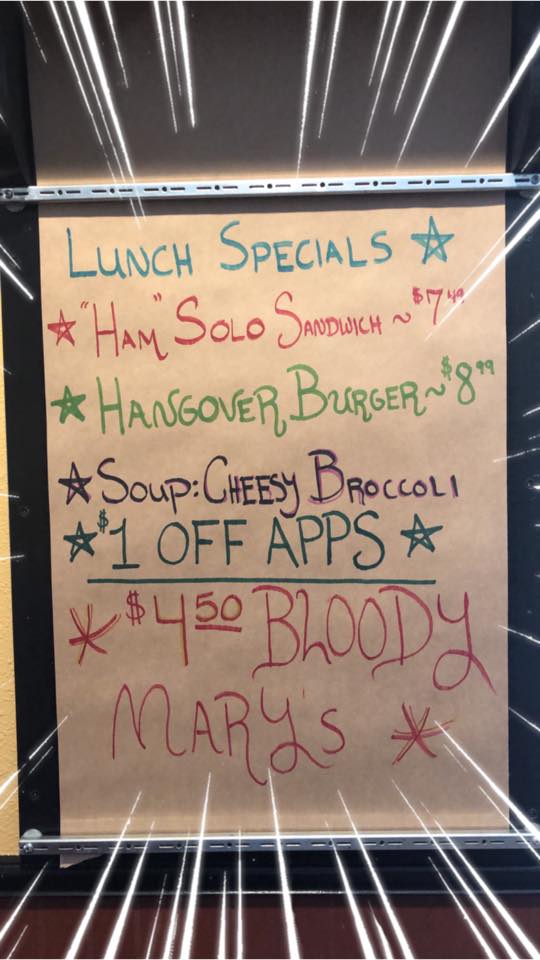 LUNCH SPECIALS
"HAM" SOLO SANDWICH ~ $7.49
HANGOVER BURGER ~ $8.99
SOUP: CHEESY BROCCOLI
$1 OFF APPS
$4.50 BLOODY
MARY'S